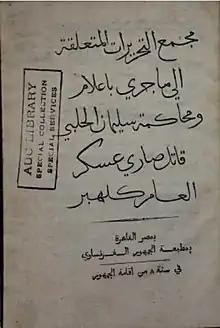 مجمع التحريرات المتعلقة
الى ما جرى باعلام
ومحاكمة سليمان الحلبي
قاتل صاري عسكر
العام كلهبر
بمصر القاهرة
بمطبعة الجمهور الفرنساوي
في سنة ٨ من اقامة الجمهور
AUC LIBRARY
SPECIAL COLLECTION
SPECIAL SERVICES